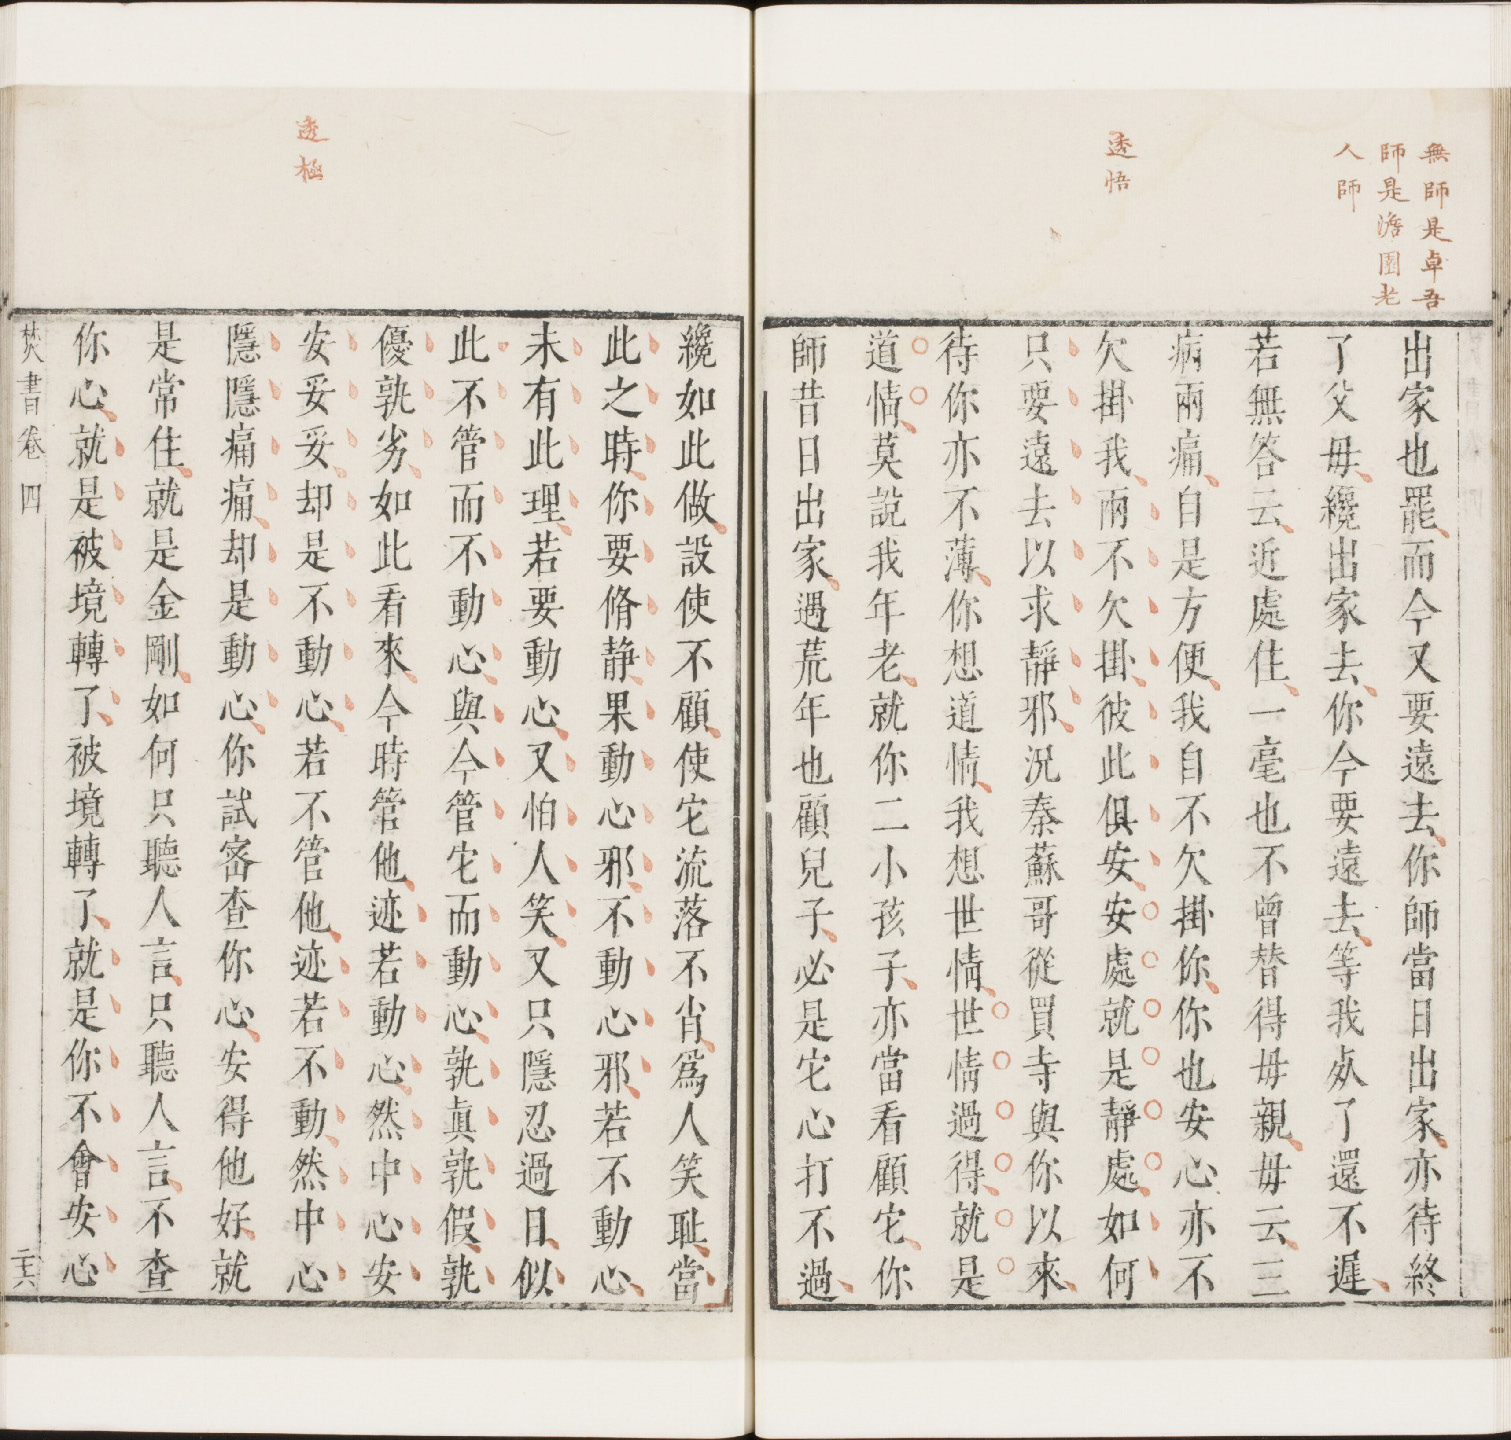 無師是卓吾
師是澹園老
人師
透悟
出家也罷而今又要遠去你師當日出家亦待終
了父毋纔出家去你今要遠去等我𣦸了還不遲
若無答云近處住一毫也不曾替得毋親毋云三
病兩痛自是方便我自不欠掛你你也安心亦不
欠掛我兩不欠掛彼此俱安安處就是靜處如何
只要遠去以求靜邪況秦蘇哥從買寺與你以來
待你亦不薄你想道情我想世情世情過得就是
道情莫說我年老就你二小孩子亦當看顧它你
師昔日出家遇荒年也顧兒子必是它心打不過
透極
纔如此做設使不顧使它流落不肖爲人笑耻當
此之時你要脩静果動心邪不動心邪若不動心
未有此理若要動心又怕人笑又只隱忍過日似
此不管而不動心與今管它而動心孰真孰假孰
優孰劣如此看來今時管他迹若動心然中心安
安妥妥却是不動心若不管他迹若不動然中心
隱隱痛痛却是動心你試密查你心安得他好就
是常住就是金剛如何只聽人言只聽人言不查
你心就是被境轉了被境轉了就是你不會安心
焚書卷四
二六